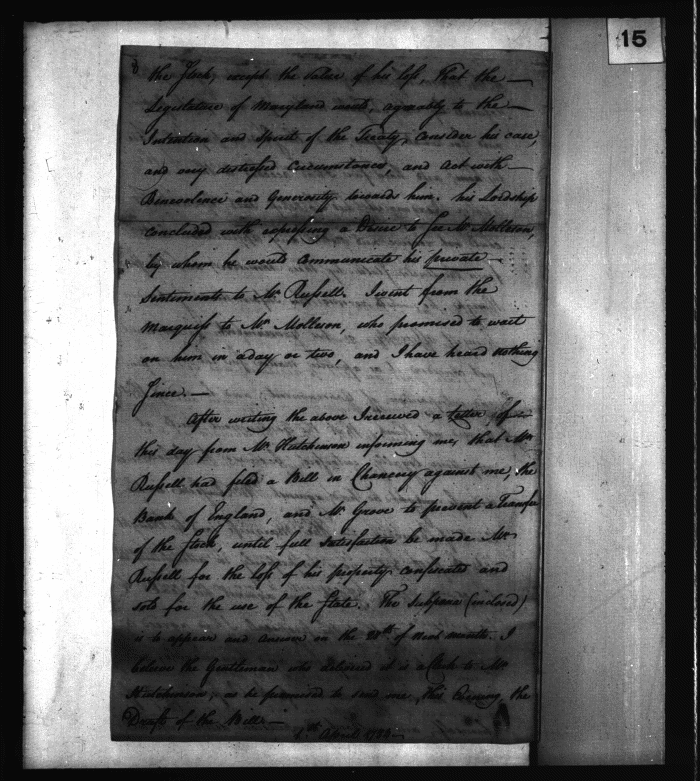 15
8
the Stock, except the Value of his loss, That the —
Legislature of Maryland would, agreably to the —
Intention and Spirit of the Treaty, Consider his case,
and any distressed Circumstances, and act with —
Benevolence and Generosity towards him. his Lordship
concluded with expressing a Desire to see Mr Molleson,
by whom he would Communicate his private —
Sentiments to Mr Russell. I went from the
Marquiss to Mr Molleson, who promised to wait
on him in a day or two, and I have heard nothing
Since. —
After writing the above I received a Letter of
this day from Mr Hutchinson informing me, that Mr
Russell had filed a Bill in Chancery against me, the
Bank of England, and Mr Grove to prevent a Transfer
of the Stock, until full Satisfaction be made Mr
Russell for the loss of his property confiscated and
sold for the use of the State. The Subpœna (inclosed)
is to appear and answer on the 28th of next month. I
believe the Gentleman who delivered it is a Clerk to Mr
Hutchinson, as he promised to send me, this Evening the
Draft of the Bill —
April